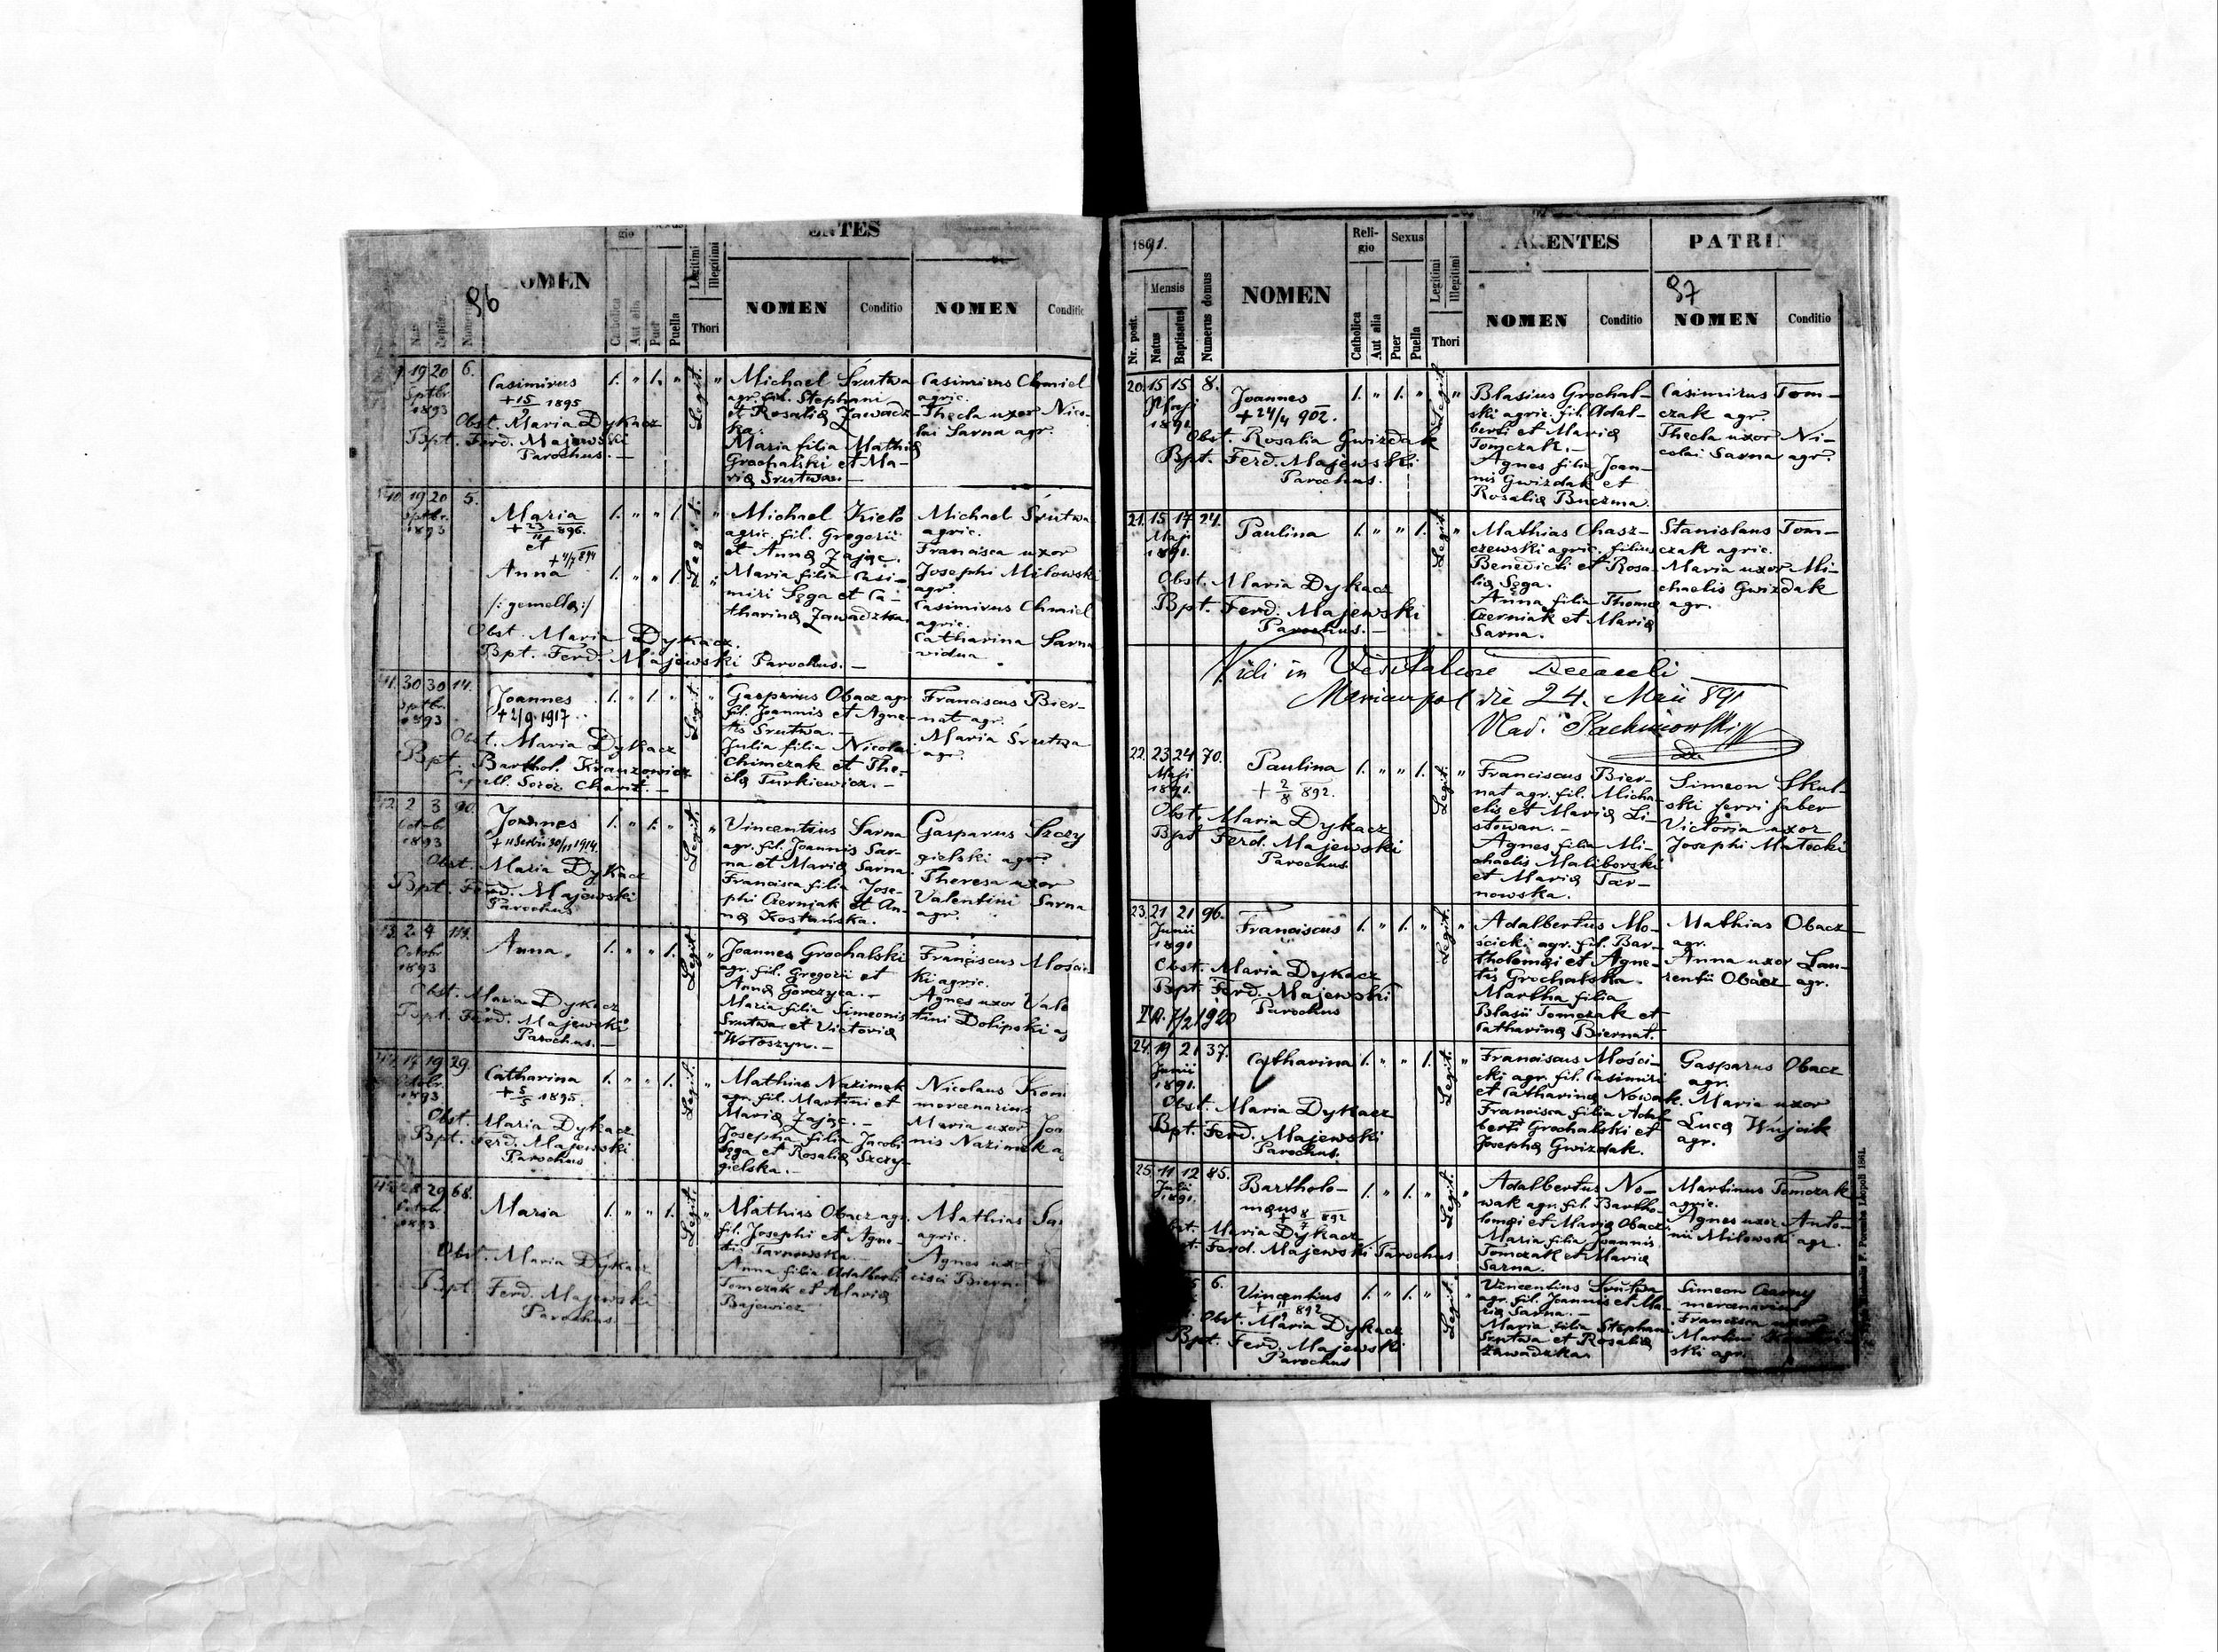 96
NOMEN
gio
Sexus
Catholica
Aut alia
Puer
Puella
Legitimi
Illegitimi
Thori
ENTES
NOMEN
Conditio
NOMEN
Conditio
19 20 6.
Sptbr
1893
Casimirus
+ 15/9 1895
Obst. Maria Dykacz
Bpt. Ferd. Majewski
Parochus.—
1. " 1. "
Legit. "
Michael Śrutwa
agr. fil. Stephani
et Rosaliæ Zawadz-
ka.
Maria filia Mathiæ
Grochalski et Ma-
riæ Śrutwa.—
Casimirus Chmiel
agric.
Thecla uxor Nico-
lai Sarna agr.
40. 19 20 5.
Sptbr.
1893
Maria
+ 23/11 896.
et
+ 4/7 894
Anna
/: gemellæ :/
Obst. Maria Dykacz.
Bpt. Ferd. Majewski Parochus.—
1. " " 1.
1. " " 1.
Legit. "
Michael Kiełb
agric. fil. Gregorii
et Annæ Zając.
Maria filia Casi-
miri Sęga et Ca-
tharinæ Zawadzka.
Michael Śrutwa
agric.
Francisca uxor
Josephi Milowski
agr.
Casimirus Chmiel
agric.
Catharina Sarna
vidua.
41. 30 30 14.
Sptbr.
1893
Joannes
+ 2/9. 1917.
Obst. Maria Dykacz
Bpt. Barthol. Kranzowicz
Capell. Soror. Charit.—
1. " 1. "
Legit. "
Gasparus Obacz agr.
fil. Joannis et Agne-
tis Śrutwa.—
Julia filia Nicolai
Chimczak et The-
clæ Turkiewicz.—
Franciscus Bier-
nat agr.
Maria Śrutwa
agr.
42. 2 3 90.
Octobr.
1893
Joannes
Obst. Maria Dykacz
Bpt. Ferd. Majewski
Parochus
1. " 1. "
Legit. "
Vincentius Sarna
agr. fil. Joannis Sar-
na et Mariæ Sarna.
Francisca filia Jose-
phi Czerniak et An-
næ Kostańska.
Gasparus Szczy
gielski agr.
Theresa uxor
Valentini Sarna
agr.
43. 2. 4
Octobr
1893
Anna.
Obst. Maria Dykacz
Bpt. Ferd. Majewski
Parochus.—
1. " " 1.
Legit. "
Joannes Grochalski
agr. fil. Gregorii et
Annæ Gorczyca.—
Maria filia Simeonis
Śrutwa et Victoriæ
Wołoszyn.—
Franciscus Mości
ki agric.
Agnes uxor Vale
tini Dolipski
44. 17 19 29.
Octobr.
1893
Catharina
+ 5/5 1895.
Obst. Maria Dykacz
Bpt. Ferd. Majewski
Parochus
1. " " 1.
Legit. "
Mathias Nazimek
agr. fil. Martini et
Mariæ Zając.—
Josepha filia Jacobi
Sęga et Rosaliæ Szczy-
gielska.—
Nicolaus
mercenarius
Maria uxor
nis Nazimek
45. 28 29 68.
Octobr.
1893
Maria
Obst. Maria Dykacz
Bpt. Ferd. Majewski
Parochus.—
1. " " 1.
Legit. "
Mathias Obacz agr.
fil. Josephi et Agne-
tis Tarnowska.
Anna filia Adalberti
Tomczak et Mariæ
Bajewicz
Mathias
agric.
Agnes
cisci Biern
1891.
97
Nr. posit.
Mensis
Natus
Baptisatus
Numerus domus
NOMEN
Reli-
gio
Catholica
Aut alia
Sexus
Puer
Puella
Legitimi
Illegitimi
Thori
PARENTES
NOMEN
Conditio
PATRI
NOMEN
Conditio
20. 15 15 8.
Maji
1891
Joannes
+ 24/4 902.
Obst. Rosalia Gwizdak
Bpt. Ferd. Majewski
Parochus.
1. " 1. "
Legit. "
Blasius Grochal-
ski agric. fil. Adal-
berti et Mariæ
Tomczak.—
Agnes filia Joan-
nis Gwizdak et
Rosaliæ Buczma.
Casimirus Tom-
czak agr.
Thecla uxor Ni-
colai Sarna agr.
21. 15 17 24.
Maji
1891.
Paulina
Obst. Maria Dykacz
Bpt. Ferd. Majewski
Parochus.—
1. " " 1.
Legit. "
Mathias Chasz-
czewski agric. filius
Benedicti et Rosa-
liæ Sęga.
Anna filia Thomæ
Czerniak et Mariæ
Sarna.
Stanislaus Tom-
czak agric.
Maria uxor Mi-
chaelis Gwizdak
agr.
Vidi in Visitatione Decanali
Mariampol die 24. Maii 891
22. 23 24 70.
Maji
1891.
Paulina
+ 2/8 892.
Obst. Maria Dykacz
Bpt Ferd. Majewski
Parochus.
1. " " 1.
Legit. "
Franciscus Bier-
nat agr. fil. Micha-
elis et Mariæ Li-
stowan.—
Agnes filia Mi-
chaelis Maliborski
et Mariæ Tar-
nowska.
Simeon Skul-
ski ferri faber
Victoria uxor
Josephi Małecki
23. 21 21 96.
Junii
1891
Franciscus
Obst. Maria Dykacz
Bpt. Ferd. Majewski
Parochus
7/2 1920
1. " 1. "
Legit. "
Adalbertus Mo-
ścicki agr. fil. Bar-
tholomæi et Agne-
tis Grochalska.
Martha filia
Blasii Tomczak et
Catharinæ Biernat.
Mathias Obacz
agr.
Anna uxor Lau-
rentii Obacz agr.
24. 19 21 37.
Junii
1891.
Catharina
Obst. Maria Dykacz
Bpt. Ferd. Majewski
Parochus.
1. " " 1.
Legit. "
Franciscus Mości-
cki agr. fil. Casimiri
et Catharinæ Nowak.
Francisca filia Adal-
berti Grochalski et
Josephæ Gwizdak.
Gasparus Obacz
agr.
Maria uxor
Lucæ Wujcik
agr.
25. 11 12 85.
Julii
1891.
Bartholo-
mæus
+ 8/7 892
Obst. Maria Dykacz
Bpt. Ferd. Majewski Parochus
1. " 1. "
Legit. "
Adalbertus No-
wak agr. fil. Bartho-
lomæi et Mariæ Obacz.
Maria filia Joannis
Tomczak et Mariæ
Sarna.
Martinus Tomczak
agric.
Agnes uxor Anto-
nii Milowski agr.
6.
Vincentius
Obst. Maria Dykacz
Bpt. Ferd. Majewski
Parochus
1. " 1. "
Legit. "
Vincentius Śrutwa
agr. fil. Joannis et Ma-
riæ Sarna.—
Maria filia Stephani
Śrutwa et Rosaliæ
Zawadzka.
Simeon Czarny
mercenarius
Francisca uxor
Martini
ski agr.